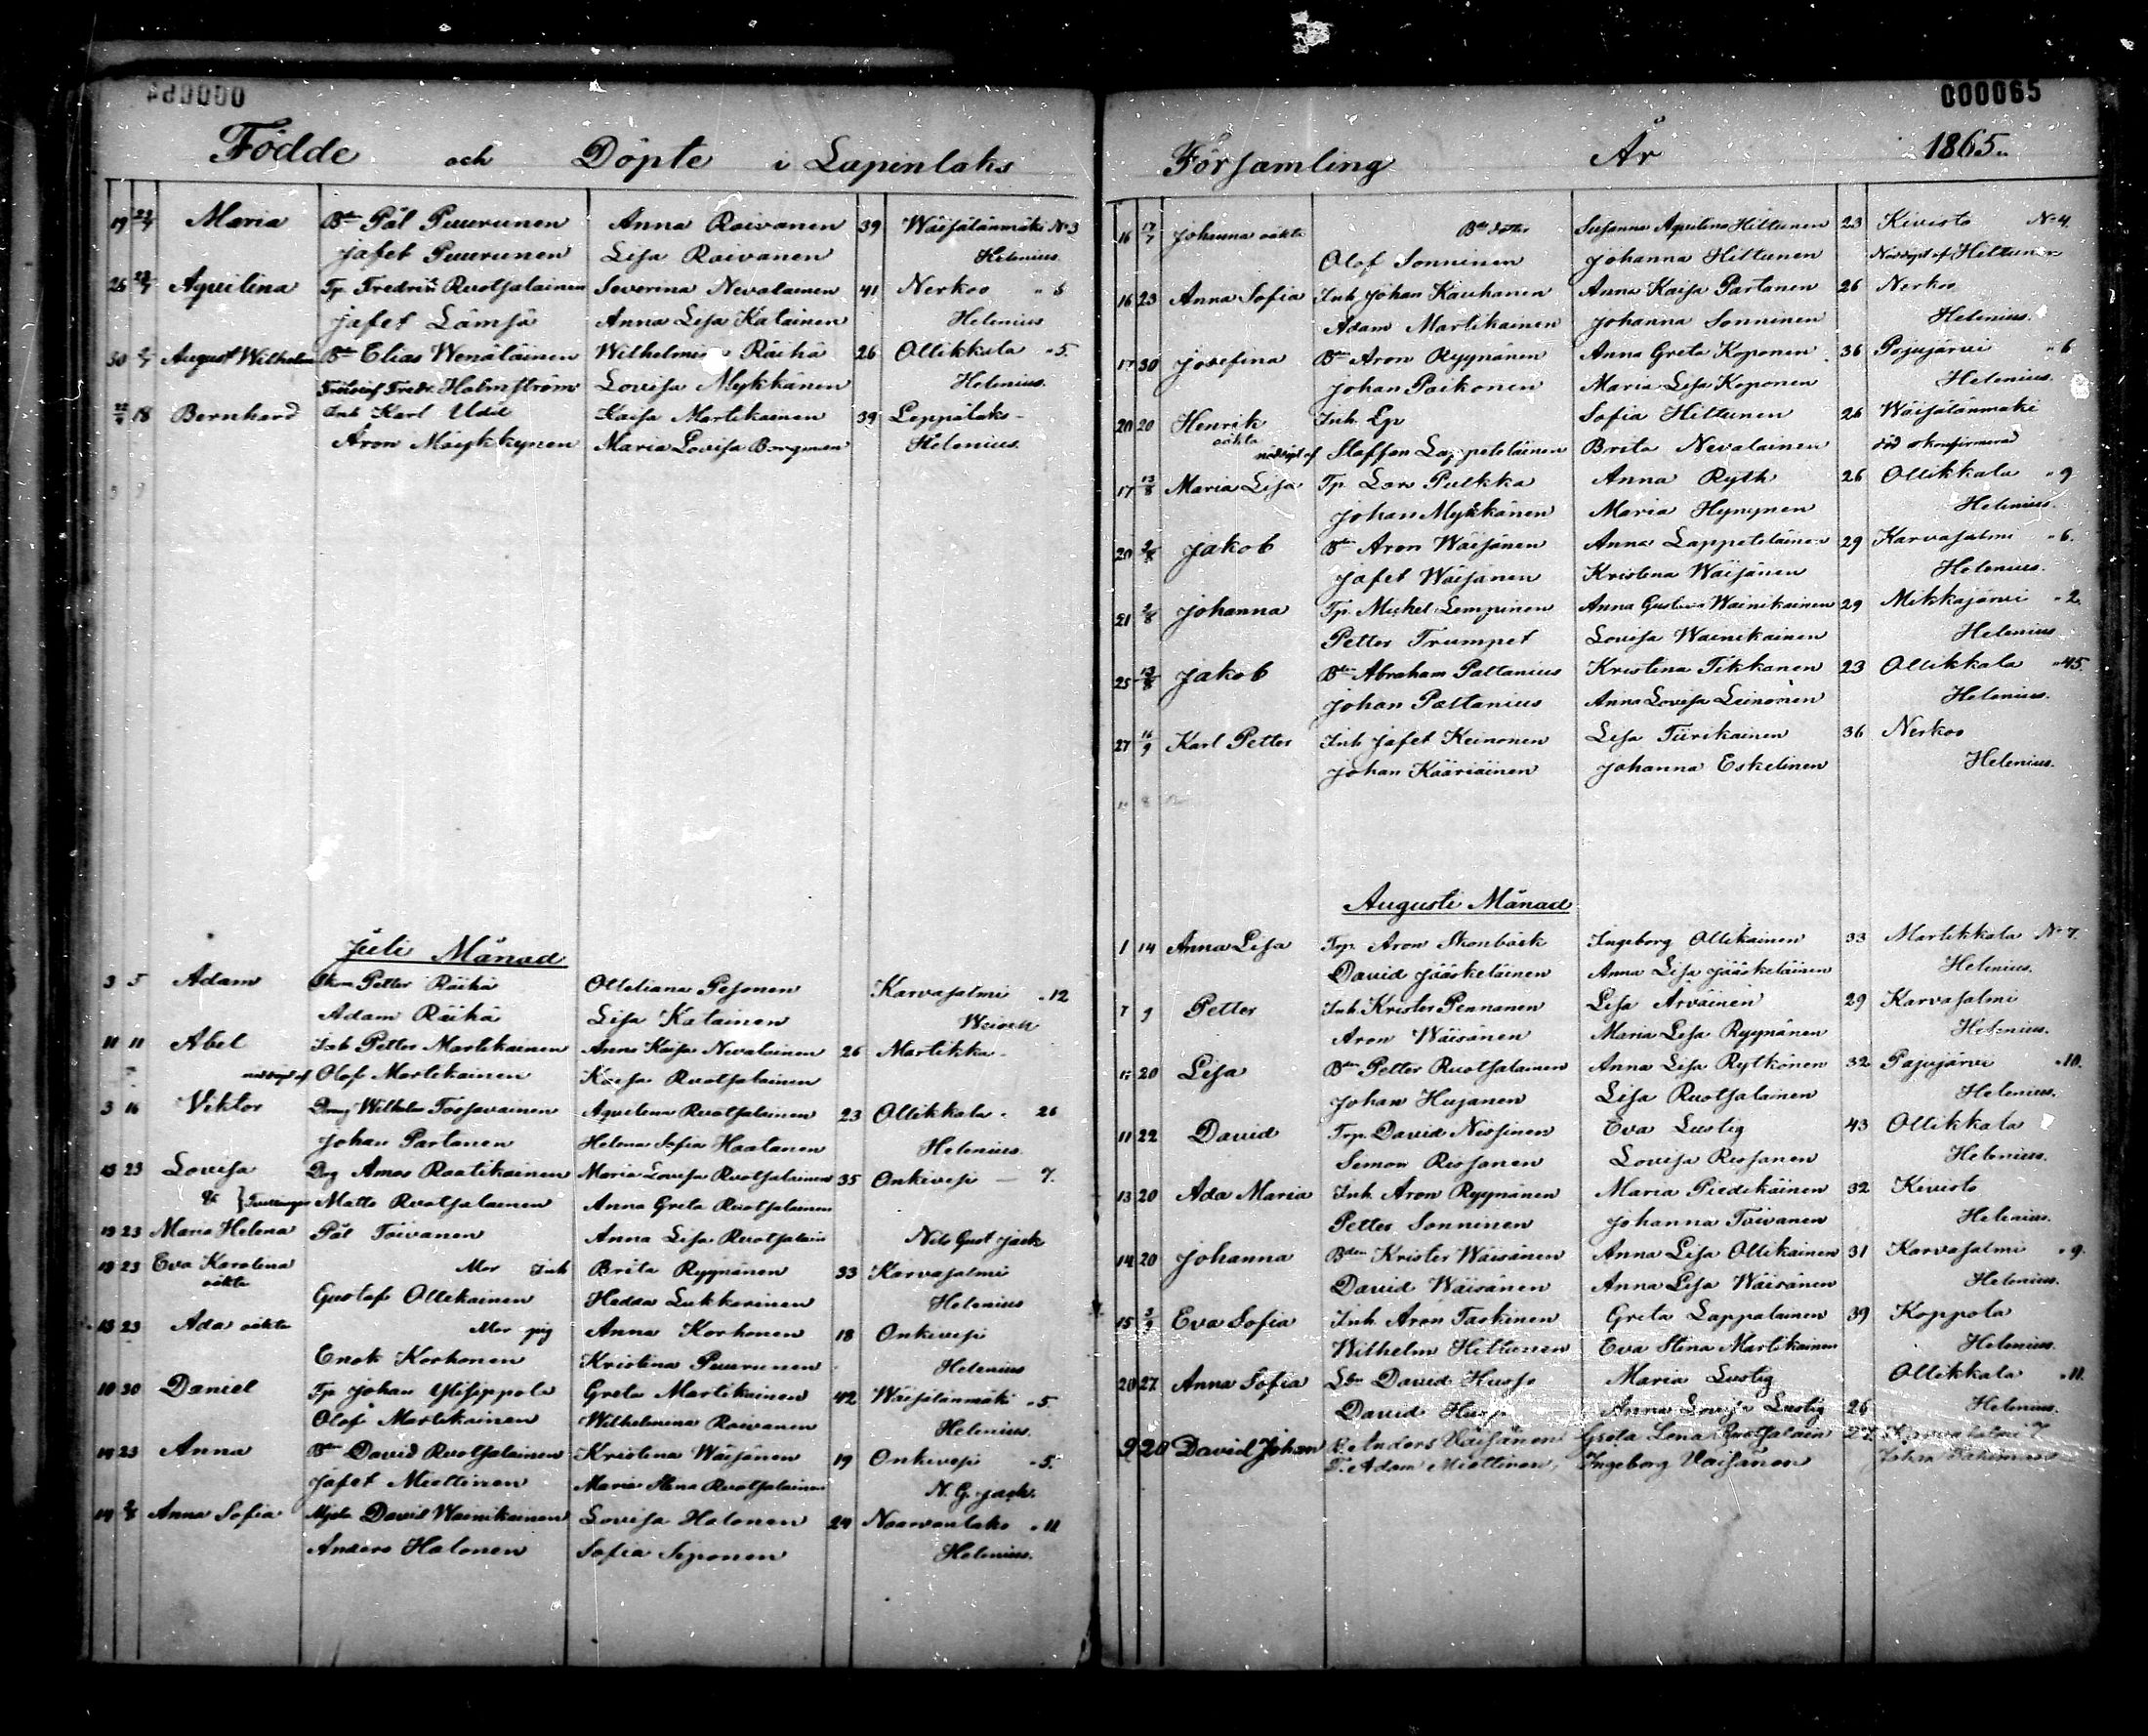 000064
Födde och Döpte i Lapinlaks
19 23/7 Maria Bdn Pål Puurunen Anna Roivanen 39 Wäisälänmäki No 3
Jafet Puurunen Lisa Roivanen Helenius.
26 23/7 Aqvilina Tp. Fredrik Ruotsalainen Severina Nevalainen 41 Nerkoo " 3
Jafet Lämsä Anna Lisa Katainen Helenius
30 2/7 August Wilhelm Bdn Elias Wenäläinen Wilhelmina Räihä 26 Ollikkala " 5.
Fredr. Holmström Lovisa Mykkänen Helenius.
18 Bernhard Inh Karl Udd Kaisa Martikainen 39 Leppälaks
Aron Mäykkynen Maria Lovisa Borgman Helenius.
Juli Månad
3 5 Adam Petter Räihä Otteliana Pesonen Karvasalmi " 12
Adam Räihä Lisa Katainen
11 11 Abel Inh Petter Martikainen Anna Kaisa Nevalainen 26 Martikka
nöddöpt af Olof Martikainen Kaisa Ruotsalainen
3 16 Viktor Dreng Wilhelm Torsovainen Aqvilina Ruotsalainen 23 Ollikkala 26
Johan Partanen Helena Sofia Haatanen Helenius.
13 23 Lovisa Drg Amos Raatikainen Maria Lovisa Ruotsalainen 35 Onkivesi 7.
& } Tvillingar Matts Ruotsalainen Anna Greta Ruotsalainen
13 23 Maria Helena Pål Toivanen Anna Lisa Ruotsalain Nils Gust Jack
13 23 Eva Karolina Mor Inh Brita Ryynänen 33 Karvasalmi
oäkta Gustaf Ollikainen Hedda Lukkarinen Helenius
13 23 Ada oäkta Mor pig Anna Korhonen 18 Onkivesi
Enok Korhonen Kristina Puurunen Helenius
10 30 Daniel Tp Johan Ylisippola Greta Martikainen 42 Wäisälänmäki " 5.
Olof Martikainen Wilhelmina Roivanen Helenius.
14 23 Anna Bdn David Ruotsalainen Kristina Wäisänen 19 Onkivesi " 5.
Jafet Miettinen Maria Stina Ruotsalainen N. G. Jack.
14 2/8 Anna Sofia David Wainikainen Lovisa Halonen 24 Naarvanlaks " 11
Anders Halonen Sofia Seponen Helenius.
000065
Församling År 1865.
16 17/7 Johanna oäkta Bde dotter Susanna Aqvilina Hiltunen 23 Kivisto No 4.
Olof Sonninen Johanna Hiltunen Nöddöpt af Hiltunen
16 23 Anna Sofia Inh Johan Kauhanen Anna Kaisa Partanen 26 Nerkoo
Adam Martikainen Johanna Sonninen Helenius.
17 30 Josefina Bdn Aron Ryynänen Anna Greta Koponen 36 Pajujärvi " 6
Johan Paikonen Maria Lisa Koponen Helenius.
20 20 Henrik Inh. Ep Sofia Hiltunen 26 Wäisälänmäki
oäkta nöddöpt af Staffan Lappeteläinen Brita Nevalainen död okonfirmerad
17 13/8 Maria Lisa Tp Lars Pulkka Anna Ryth 26 Ollikkala " 9
Johan Mykkänen Maria Hynynen Helenius.
20 2/8 Jakob Bdn Aron Wäisänen Anna Lappeteläinen 29 Karvasalmi " 6.
Jafet Wäisänen Kristina Wäisänen Helenius.
21 2/8 Johanna Tp. Mickel Lempinen Anna Gustava Wainikainen 29 Mikkajärvi " 2.
Petter Trumpet Lovisa Wainikainen Helenius
25 13/8 Jakob Bdn Abraham Paltanius Kristina Tikkanen 23 Ollikkala " 45.
Johan Paltanius Anna Lovisa Leinonen Helenius.
27 16/9 Karl Petter Inh Jafet Keinonen Lisa Tiirikainen 36 Nerkoo
Johan Kääriäinen Johanna Eskelinen Helenius.
Augusti Månad
1 14 Anna Lisa Trp. Aron Skonbäck Ingeborg Ollikainen 33 Martikkala No 7.
David Jääskeläinen Anna Lisa Jääskeläinen Helenius.
7 9 Petter Inh Krister Pennanen Lisa Arväinen 29 Karvasalmi
Aron Wäisänen Maria Lisa Ryynänen Helenius.
20 Lisa Bdn Petter Ruotsalainen Anna Lisa Rytkönen 32 Pajujärvi " 10.
Johan Hujanen Lisa Ruotsalainen Helenius.
11 22 David Trp. David Nissinen Eva Lustig 43 Ollikkala
Simon Rissanen Lovisa Rissanen Helenius.
13 20 Ada Maria Inh Aron Ryynänen Maria Piedikäinen 32 Kivisto
Petter Sonninen Johanna Toivanen Helenius.
14 20 Johanna Bden Krister Wäisänen Anna Lisa Ollikainen 31 Karvasalmi " 9.
David Wäisänen Anna Lisa Wäisänen Helenius.
15 3/9 Eva Sofia Inh Aron Taskinen Greta Lappalainen 39 Koppola
Wilhelm Hiltunen Eva Stina Martikainen Helenius.
20 27 Anna Sofia David Husso Maria Lustig Ollikkala " 11.
David Husso Anna Lovisa Lustig 26 Helenius.
9 20 David Johan B. Anders Väisänen Greta Lena Ruotsalain 27 Karvasalmi 7
T. Adam Miettinen, Ingeborg Väisänen Johan